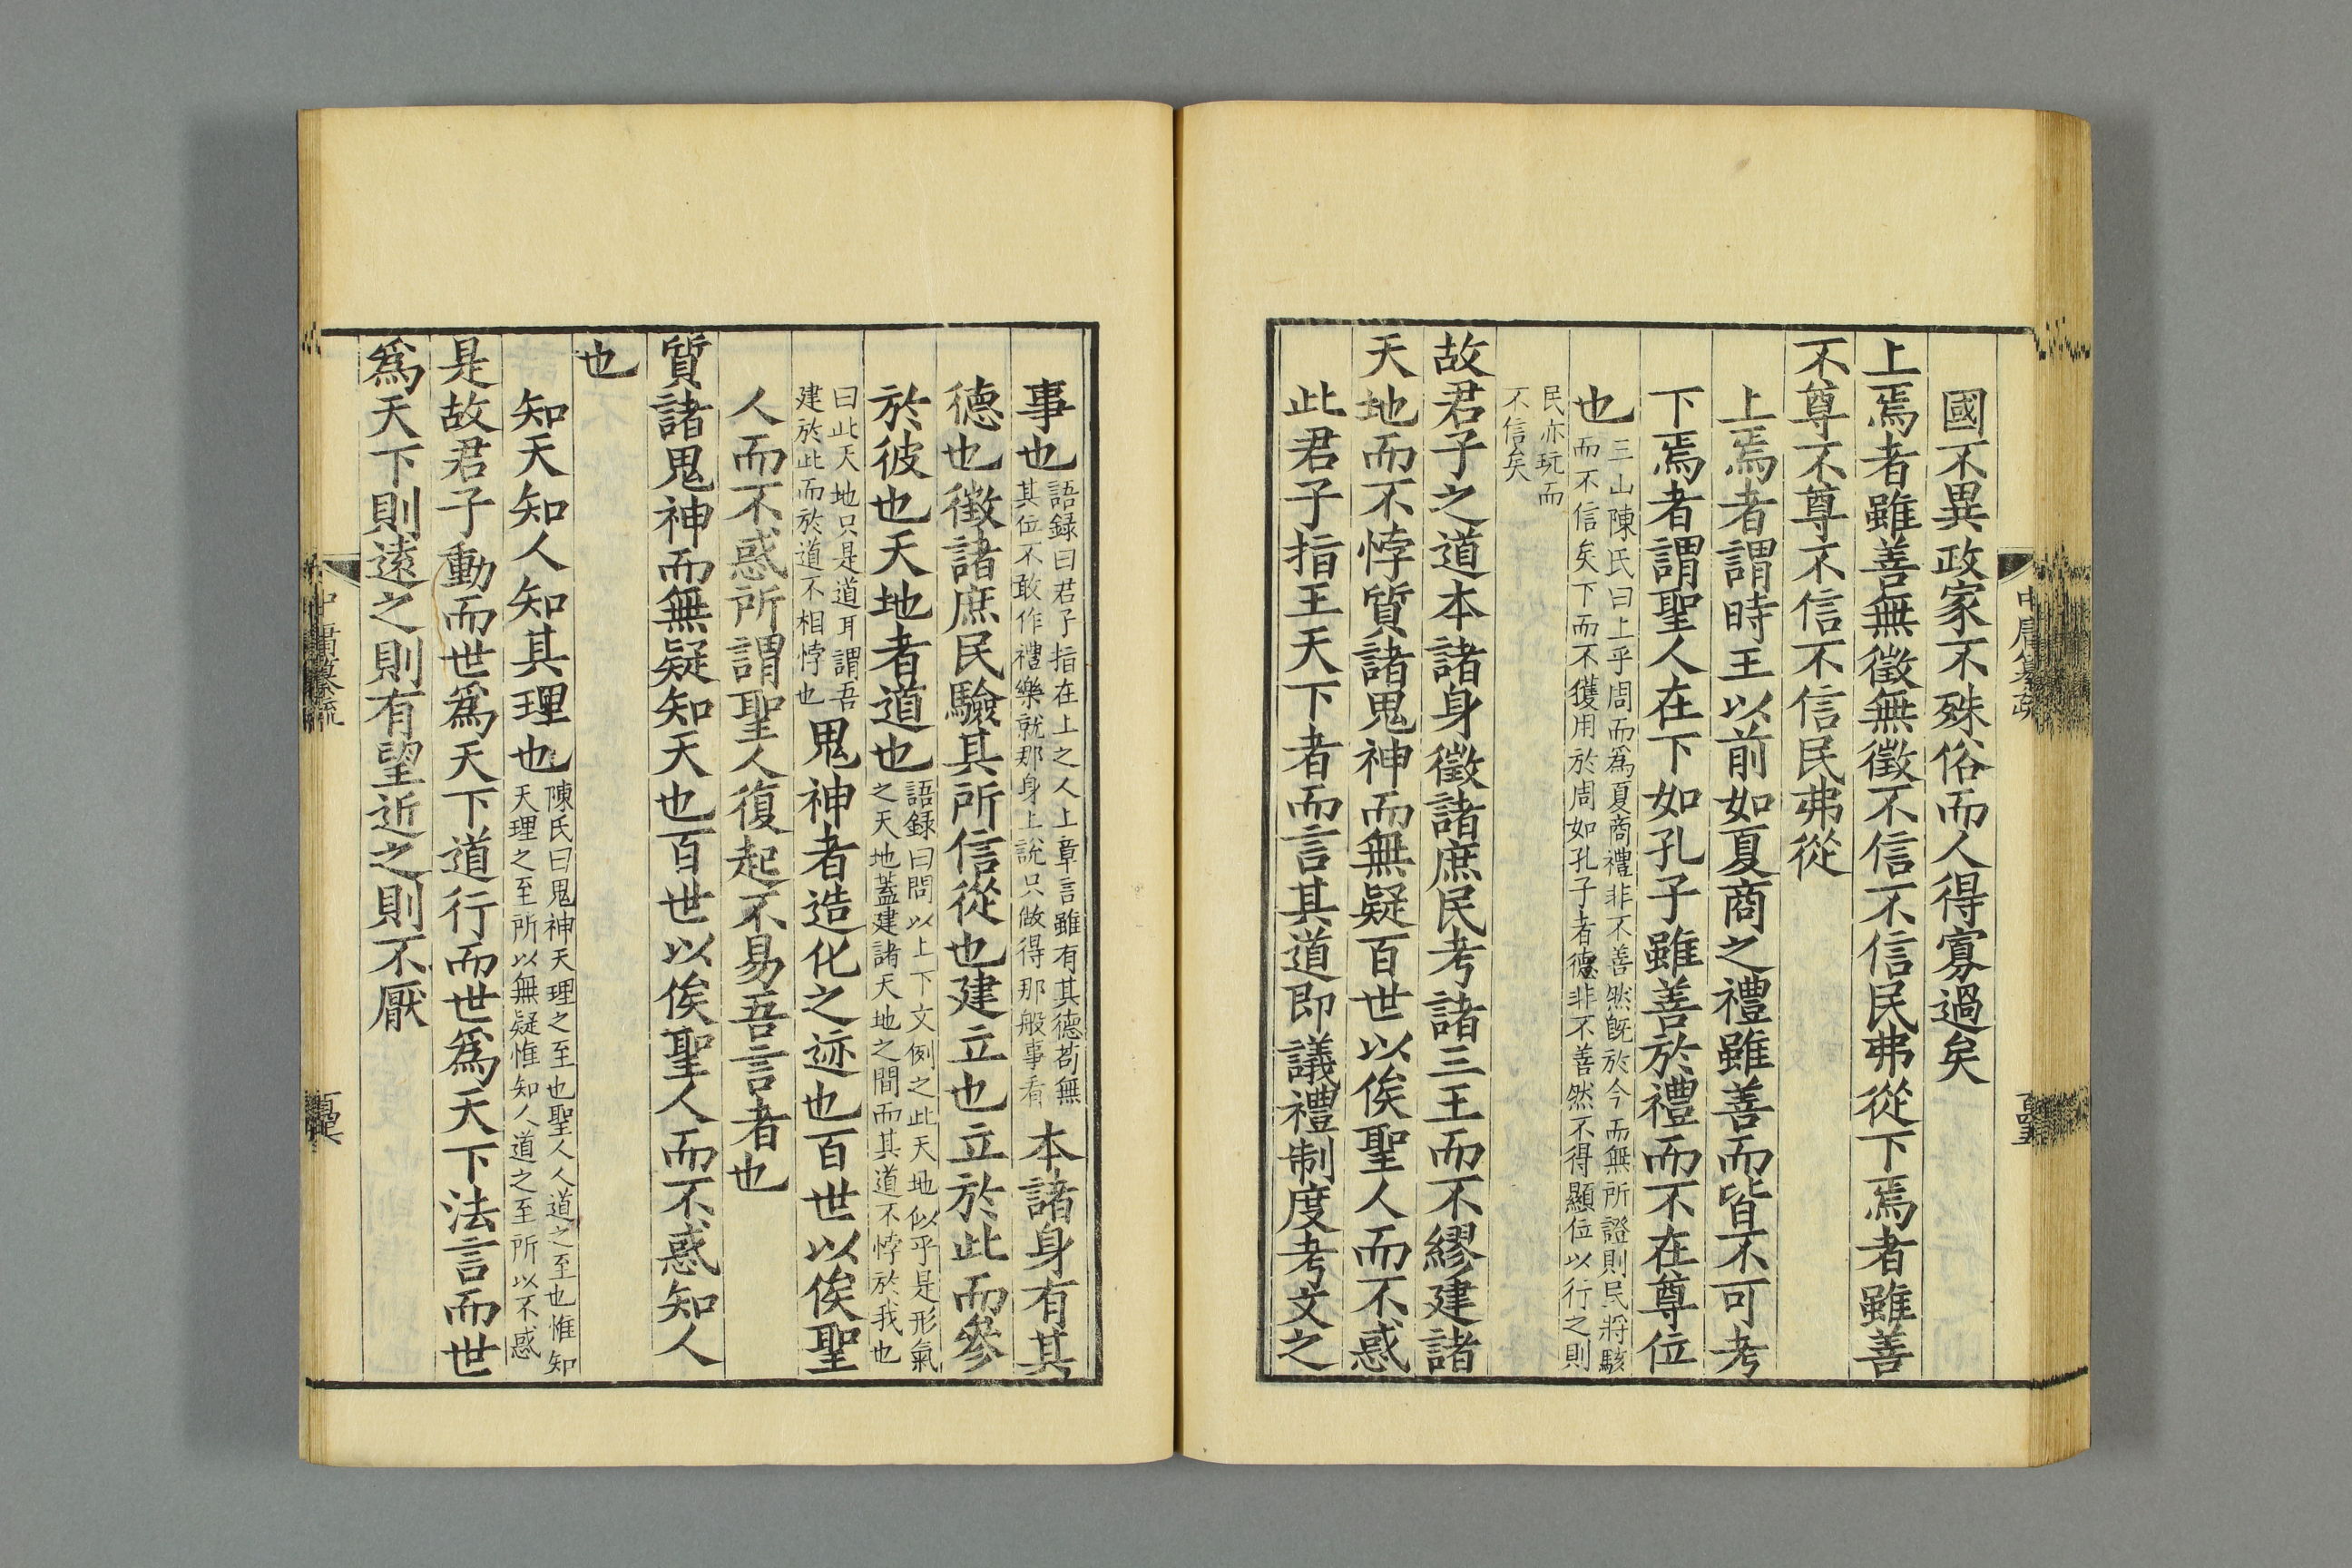 國不異政家不殊俗而人得寡過矣
上焉者雖善無徵無徵不信不信民弗從下焉者雖善
不尊不尊不信不信民弗從
上焉者謂時王以前如夏商之禮雖善而皆不可考
下焉者謂聖人在下如孔子雖善於禮而不在尊位
也
三山陳氏曰上乎周而爲夏商禮非不善然旣於今而無所證則民將駭
而不信矣下而不獲用於周如孔子者德非不善然不得顯位以行之則
民亦玩而
不信矣
故君子之道本諸身徵諸庶民考諸三王而不繆建諸
天地而不悖質諸鬼神而無疑百世以俟聖人而不惑
此君子指王天下者而言其道即議禮制度考文之
中庸纂疏
事也
語録曰君子指在上之人上章言雖有其德苟無
其位不敢作禮樂就那身上說只做得那般事看
本諸身有其
德也徵諸庶民驗其所信從也建立也立於此而參
於彼也天地者道也
語録曰問以上下文例之此天地似乎是形氣
之天地蓋建諸天地之間而其道不悖於我也
曰此天地只是道耳謂吾
建於此而於道不相悖也
鬼神者造化之迹也百世以俟聖
人而不惑所謂聖人復起不易吾言者也
質諸鬼神而無疑知天也百世以俟聖人而不惑知人
也
知天知人知其理也
陳氏曰鬼神天理之至也聖人人道之至也惟知
天理之至所以無疑惟知人道之至所以不惑
是故君子動而世爲天下道行而世爲天下法言而世
爲天下則遠之則有望近之則不厭
中庸纂疏